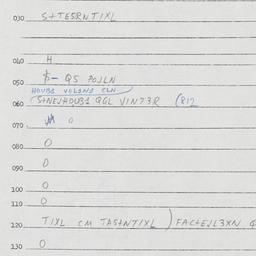 030 S+TESRNTIXL
040 H
050 $- QS POJLN
HOUB1 VOLSNS CLN
060 (S+NEJHOUB1 QGL VINT3R (812
070 M O
080 O
090 O
100 O
110 O
120 TIXL CM TAS+NTIXL ) FACTEJL3XN
130 O